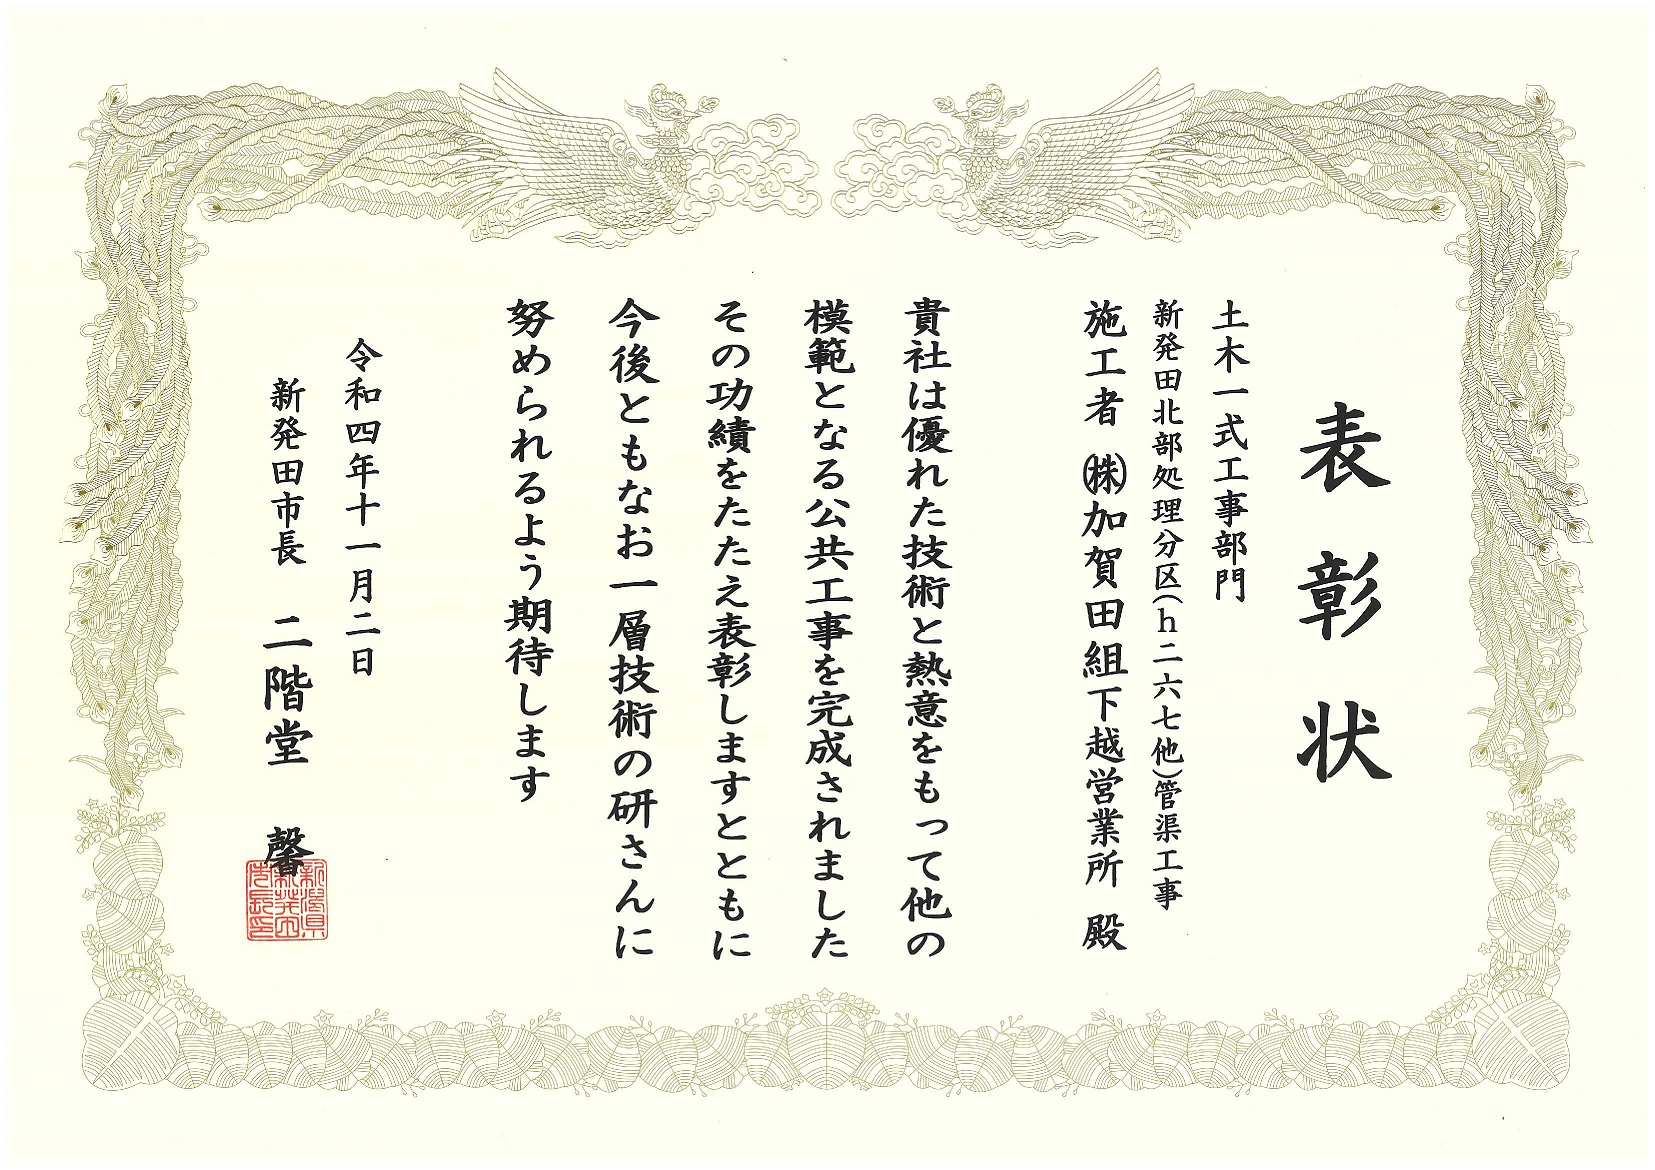 表彰状
土木一式工事部門
新発田北部処理分区(h二六七他)管渠工事
施工者 ㈱加賀田組下越営業所 殿
貴社は優れた技術と熱意をもって他の
模範となる公共工事を完成されました
その功績をたたえ表彰しますとともに
今後ともなお一層技術の研さんに
努められるよう期待します
令和四年十一月二日
新発田市長 二階堂 馨
新潟県
新発田
市長印